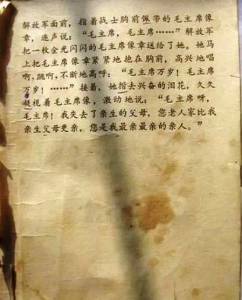 解放军面前，指着战士胸前佩带的毛主席像
章，连声说：“毛主席，毛主席……”解放军
把一枚金光闪闪的毛主席像章送给了她。她马
上把毛主席像章紧紧地抱在胸前，高兴地唱
啊，跳啊，不断地高呼：“毛主席万岁！毛主席
万岁！……”接着，她揩去兴奋的泪花，久久
凝视着毛主席像，激动地说：“毛主席呀，
毛主席！我失去了亲生的父母，您老人家比我
亲生父母更亲，您是我最亲最亲的亲人。”